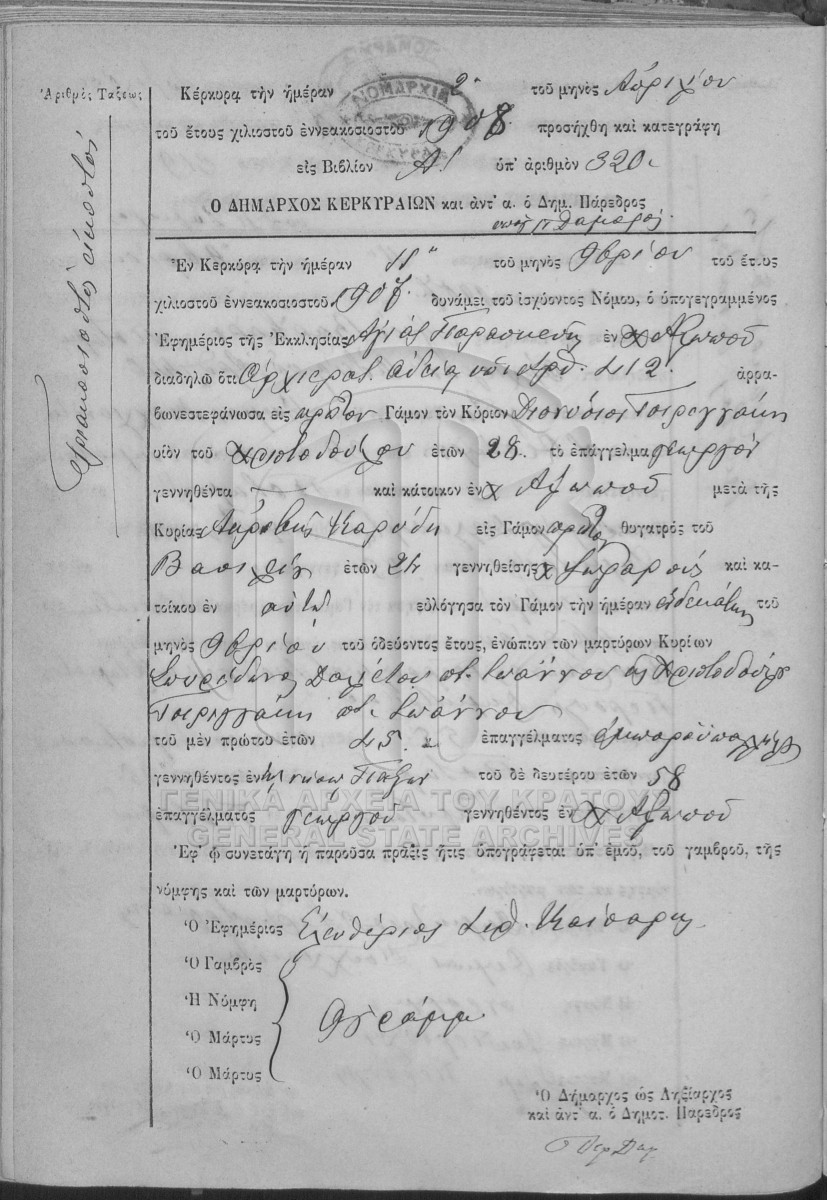 Ἀριθμὸς Τάξεως
Τριακοσιοστὸς εἰκοστὸς
ΝΟΜΑΡΧΙΑ
Κέρκυρα τὴν ἡμέραν 2α τοῦ μηνὸς Ἀπριλίου
τοῦ ἔτους χιλιοστοῦ ἐννεακοσιοστοῦ 1908 προσήχθη καὶ κατεγράφη
εἰς Βιβλίον Α! ὑπ' ἀριθμὸν 320
Ο ΔΗΜΑΡΧΟΣ ΚΕΡΚΥΡΑΙΩΝ καὶ ἀντ' α. ὁ Δημ. Πάρεδρος
Ἐν Κερκύρᾳ τὴν ἡμέραν 11 τοῦ μηνὸς 9βρίου τοῦ ἔτους
χιλιοστοῦ ἐννεακοσιοστοῦ 1907 δυνάμει τοῦ ἰσχύοντος Νόμου, ὁ ὑπογεγραμμένος
Ἐφημέριος τῆς Ἐκκλησίας Ἁγίας Παρασκευῆς ἐν χ Ἀξωποῦ
διαδηλῶ ὅτι Ἀρχιερατ. ἀδείᾳ ὑπ' ἀρθ. 412 ἀρρα-
βωνεστεφάνωσα εἰς πρῶτον Γάμον τὸν Κύριον Διονύσιον Τσιριγγάκη
υἱὸν τοῦ Χριστοδούλου ἐτῶν 28 τὸ ἐπάγγελμα γεωργὸν
γεννηθέντα καὶ κάτοικον ἐν χ Ἀξωποῦ μετὰ τῆς
Κυρίας Καρύδη εἰς Γάμον πρῶτον θυγατρὸς τοῦ
Βασιλείου ἐτῶν 24 γεννηθείσης χ καὶ κα-
τοίκου ἐν αὐτῷ εὐλόγησα τὸν Γάμον τὴν ἡμέραν ἑνδεκάτην τοῦ
μηνὸς 9βρίου τοῦ ὁδεύοντος ἔτους, ἐνώπιον τῶν μαρτύρων Κυρίων
Σπυρίδωνος Δαλιέτου ποτ. Ἰωάννου & Χριστοδούλου
Τσιριγγάκη ποτ. Ἰωάννου
τοῦ μὲν πρώτου ἐτῶν 45 ἐπαγγέλματος ἐμποροϋπαλλήλου
γεννηθέντος ἐν Παξῶν τοῦ δὲ δευτέρου ἐτῶν 58
ἐπαγγέλματος γεωργοῦ γεννηθέντος ἐν χ Ἀξωποῦ
ΓΕΝΙΚΑ ΑΡΧΕΙΑ ΤΟΥ ΚΡΑΤΟΥΣ
GENERAL STATE ARCHIVES
Ἐφ' ᾧ συνετάγη ἡ παροῦσα πρᾶξις ἥτις ὑπογράφεται ὑπ' ἐμοῦ, τοῦ γαμβροῦ, τῆς
νύμφης καὶ τῶν μαρτύρων.
Ὁ Ἐφημέριος Ἐλευθέριος Ἱερ. Καίσαρης
Ὁ Γαμβρὸς
Ἡ Νύμφη
Ἀγράμμ
Ὁ Μάρτυς
Ὁ Μάρτυς
Ὁ Δήμαρχος ὡς Ληξίαρχος
καὶ ἀντ' α. ὁ Δημοτ. Πάρεδρος